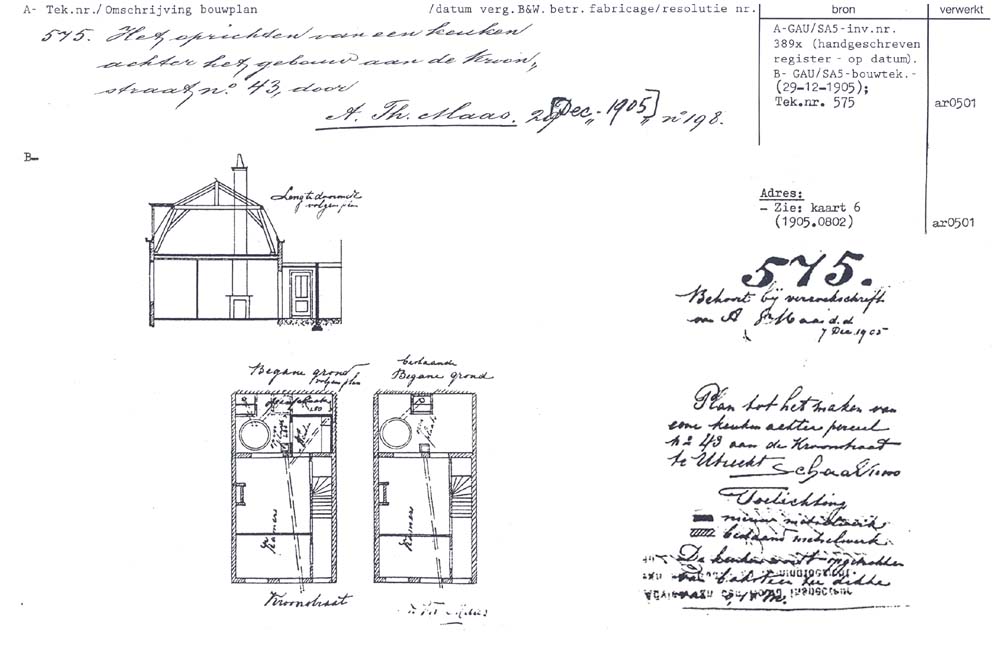 A- Tek.nr./ Omschrijving bouwplan /datum verg.B&W. betr. fabricage/resolutie nr. bron verwerkt
575. Het oprichten van een keuken
achter het gebouw aan de Kroon„
straat, nº 43, door
A. Th. Maas. 29 [Dec. 1905] „ nº 198.
A-GAU/SA5-inv.nr.
389x (handgeschreven
register - op datum).
B- GAU/SA5-bouwtek.-
(29-12-1905);
Tek.nr. 575 ar0501
B-
Adres:
- Zie: kaart 6
(1905.0802) ar0501
Lengte doorsnede
volgens plan
575.
Behoort bij verzoekschrift
van A Th Maas d.d.
7 Dec. 1905
Begane grond
volgens plan
bestaande
Begane grond
Kamers
Kamers
Kroonstraat
Plan tot het maken van
eene keuken achter perceel
Nº 43 aan de Kroonstraat
te Utrecht
Schaal
Toelichting
nieuw metselwerk
bestaand metselwerk
De keuken wordt opgetrokken
van baksteen ter dikte